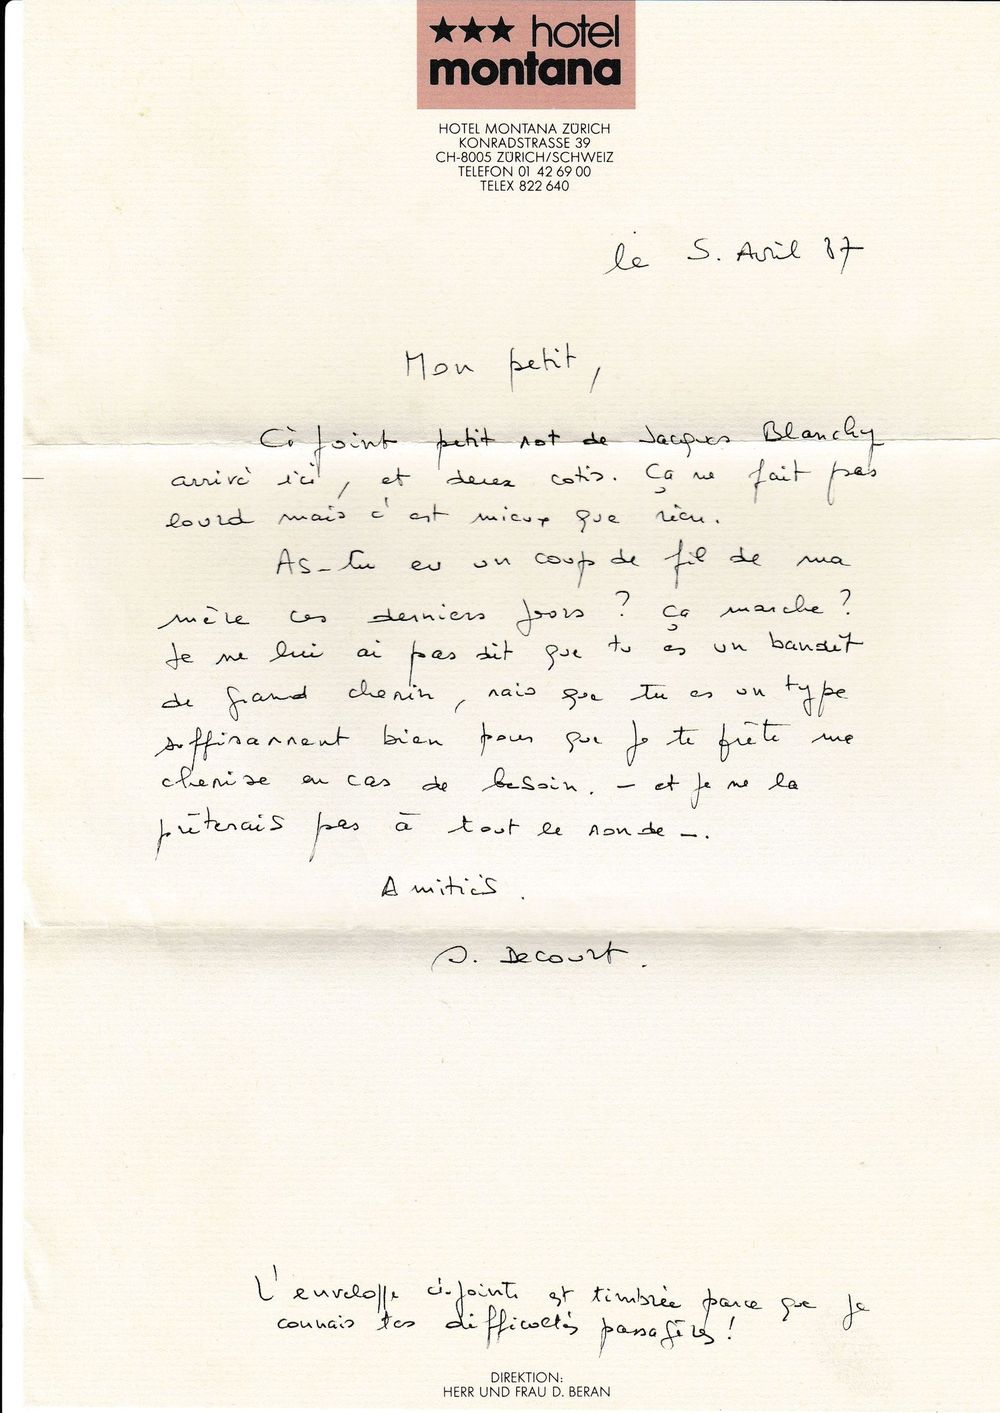 ★★★ hotel
montana
HOTEL MONTANA ZÜRICH
KONRADSTRASSE 39
CH-8005 ZÜRICH/SCHWEIZ
TELEFON 01 42 69 00
TELEX 822 640
le 5. Avril 87
Mon petit,
Ci joint petit mot de Jacques Blanchy
arrivé ici, et deux cotis. Ça ne fait pas
lourd mais c'est mieux que rien.
As-tu eu un coup de fil de ma
mère ces derniers jours ? ça marche ?
Je ne lui ai pas dit que tu es un bandit
de grand chemin, mais que tu es un type
suffisamment bien pour que je te prête ma
chemise en cas de besoin. – et je ne la
prêterais pas à tout le monde –.
Amitiés.
J. Decourt.
L'enveloppe ci-jointe est timbrée parce que je
connais tes difficultés passagères !
DIREKTION:
HERR UND FRAU D. BERAN